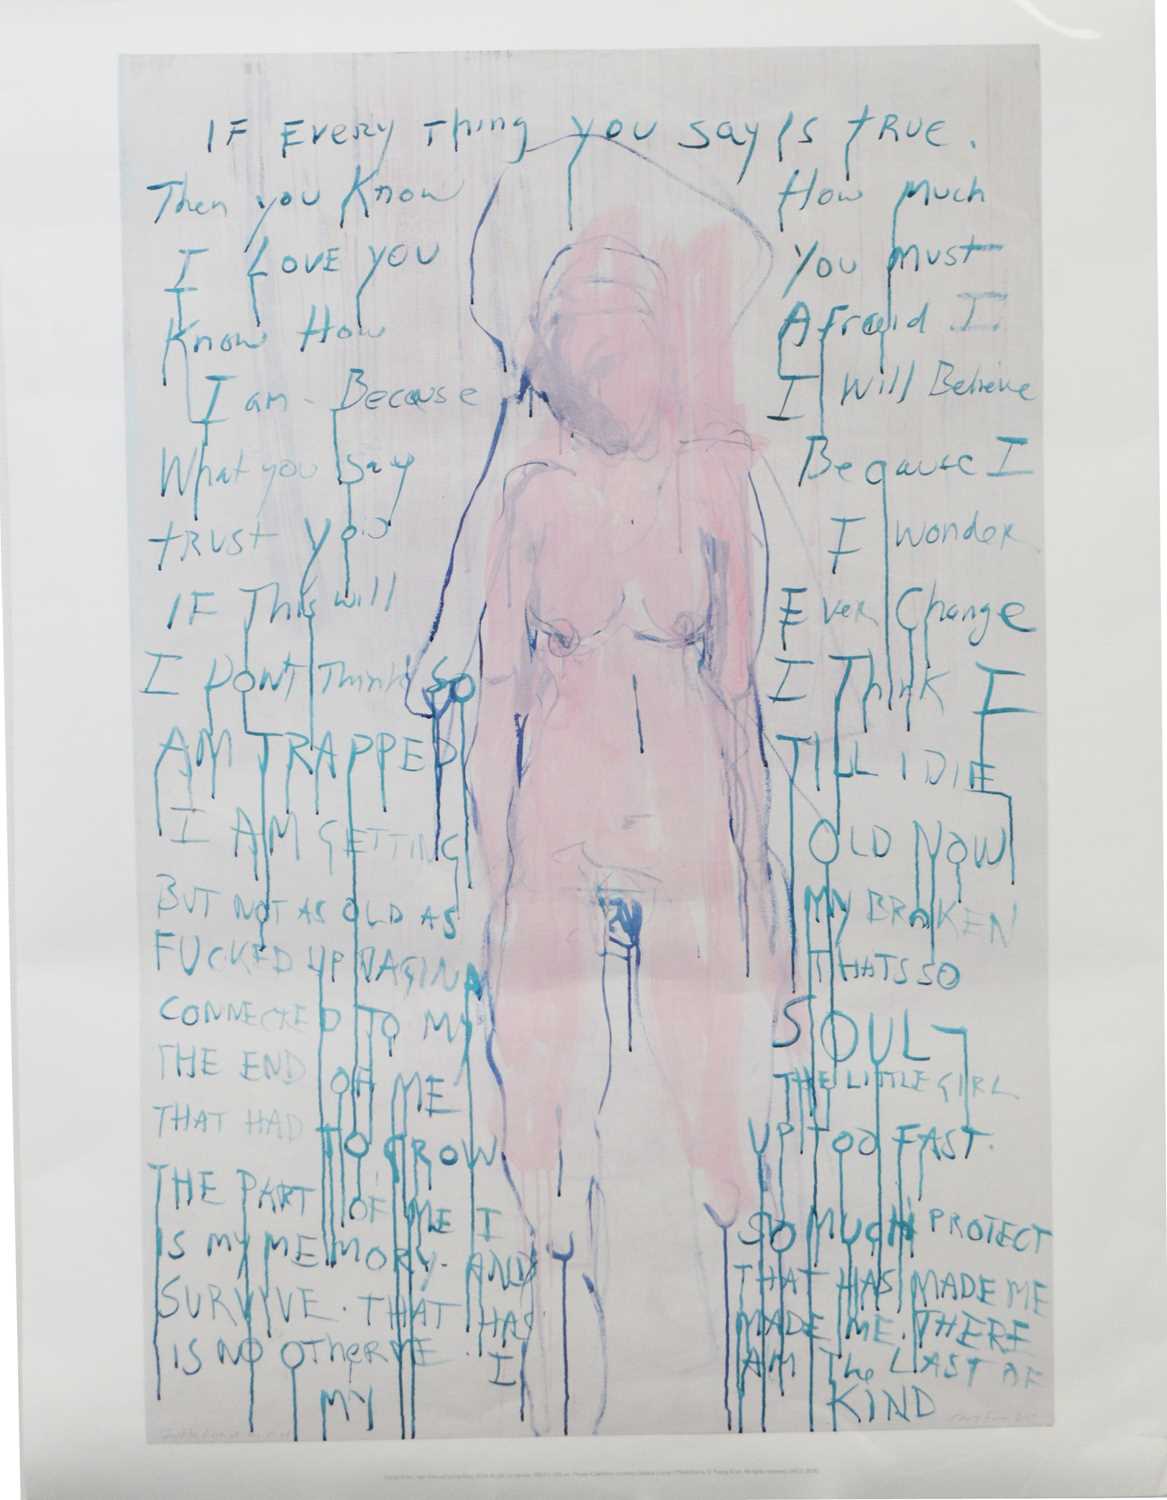 IF Every Thing you say Is TRUE.
Then you Know How Much
I LOVE YOU You Must
Know How Afraid I
I am - Because I Will Believe
What you Say Because I
TRUST you I Wonder
IF This will Ever Change
I DON'T Think SO I Think I
AM TRAPPED TILL I DIE
I AM GETTING OLD NOW
BUT NOT AS OLD AS MY BROKEN
FUCKED UP VAGINA THATS SO
CONNECTED TO MY SOUL
THE END OF ME THE LITTLE GIRL
THAT HAD TO GROW UP TOO FAST.
THE PART OF ME I SO MUCH PROTECT
IS MY MEMORY. AND THAT HAS MADE ME
SURVIVE. THAT HAS MADE ME. THERE
IS NO OTHER ME. I AM The LAST OF
MY KIND